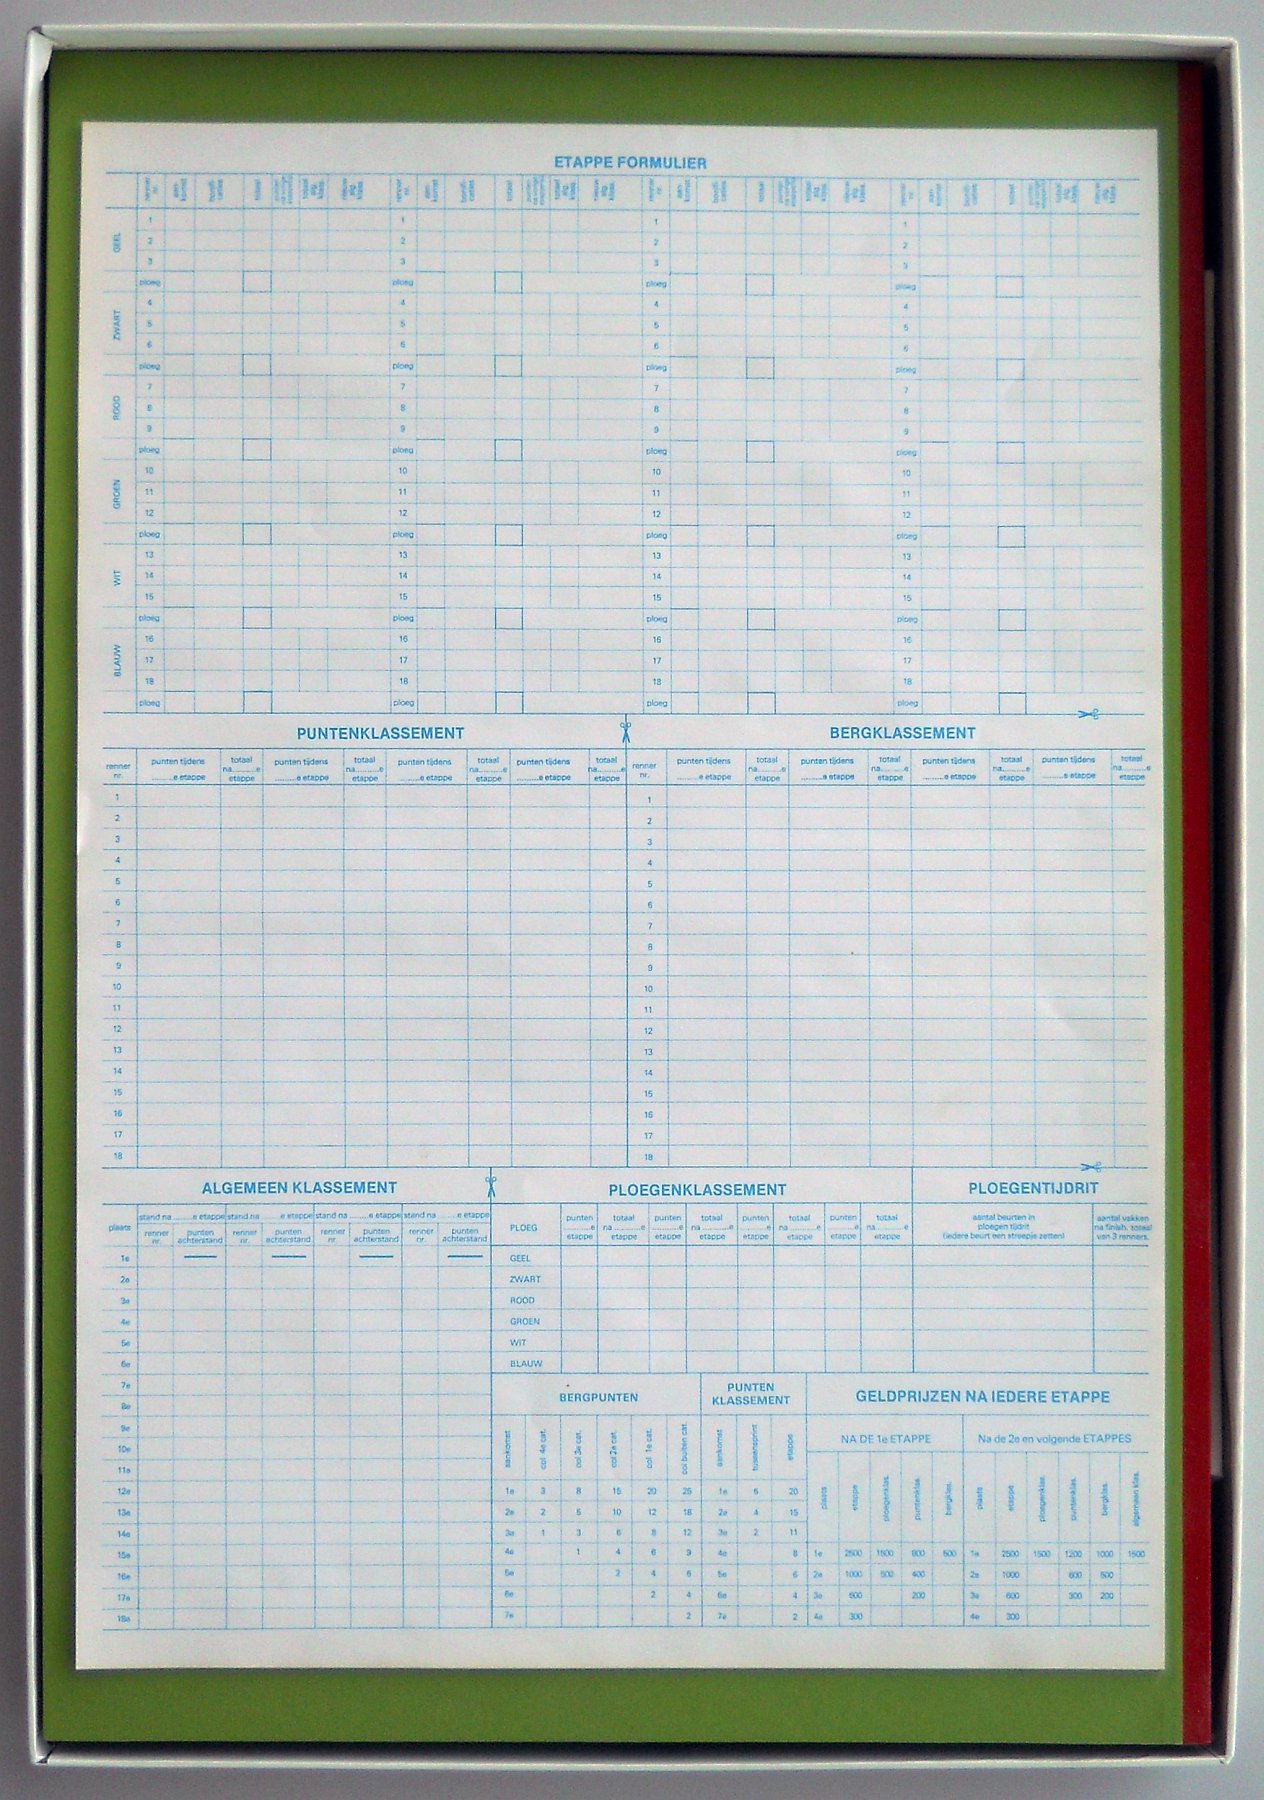 ETAPPE FORMULIER
renner nr. aan- komst bonifi- caties totaal totaal alg. klas. nieuw alg. klas. renner nr. aan- komst bonifi- caties totaal totaal alg. klas. nieuw alg. klas. renner nr. aan- komst bonifi- caties totaal totaal alg. klas. nieuw alg. klas. renner nr. aan- komst bonifi- caties totaal totaal alg. klas. nieuw alg. klas.
GEEL
1 1 1 1
2 2 2 2
3 3 3 3
ploeg ploeg ploeg ploeg
ZWART
4 4 4 4
5 5 5 5
6 6 6 6
ploeg ploeg ploeg ploeg
ROOD
7 7 7 7
8 8 8 8
9 9 9 9
ploeg ploeg ploeg ploeg
GROEN
10 10 10 10
11 11 11 11
12 12 12 12
ploeg ploeg ploeg ploeg
WIT
13 13 13 13
14 14 14 14
15 15 15 15
ploeg ploeg ploeg ploeg
BLAUW
16 16 16 16
17 17 17 17
18 18 18 18
ploeg ploeg ploeg ploeg
PUNTENKLASSEMENT
renner nr. punten tijdens ........e etappe totaal na..........e etappe punten tijdens ........e etappe totaal na..........e etappe punten tijdens ........e etappe totaal na..........e etappe punten tijdens ........e etappe totaal na..........e etappe
1
2
3
4
5
6
7
8
9
10
11
12
13
14
15
16
17
18
BERGKLASSEMENT
renner nr. punten tijdens ..........e etappe totaal na..........e etappe punten tijdens ..........e etappe totaal na..........e etappe punten tijdens ..........e etappe totaal na..........e etappe punten tijdens ..........e etappe totaal na..........e etappe
1
2
3
4
5
6
7
8
9
10
11
12
13
14
15
16
17
18
ALGEMEEN KLASSEMENT
plaats stand na ........e etappe stand na ........e etappe stand na ........e etappe stand na ........e etappe
renner nr. punten achterstand renner nr. punten achterstand renner nr. punten achterstand renner nr. punten achterstand
1e
2e
3e
4e
5e
6e
7e
8e
9e
10e
11e
12e
13e
14e
15e
16e
17e
18e
PLOEGENKLASSEMENT
PLOEG punten ..........e etappe totaal na ..........e etappe punten ..........e etappe totaal na ..........e etappe punten ..........e etappe totaal na ..........e etappe punten ..........e etappe totaal na ..........e etappe
GEEL
ZWART
ROOD
GROEN
WIT
BLAUW
PLOEGENTIJDRIT
aantal beurten in
ploegen tijdrit
(iedere beurt een streepje zetten)
aantal vakken
na finish, totaal
van 3 renners.
BERGPUNTEN
aankomst col 4e cat. col 3e cat. col 2e cat. col 1e cat. col buiten cat.
1e 3 8 15 20 25
2e 2 5 10 12 18
3e 1 3 6 8 12
4e 1 4 6 9
5e 2 4 6
6e 2 4
7e 2
PUNTEN
KLASSEMENT
aankomst tussensprint etappe
1e 6 20
2e 4 15
3e 2 11
4e 8
5e 6
6e 4
7e 2
GELDPRIJZEN NA IEDERE ETAPPE
NA DE 1e ETAPPE
plaats etappe ploegenklas. puntenklas. bergklas.
1e 2500 1500 800 500
2e 1000 500 400
3e 600 200
4e 300
Na de 2e en volgende ETAPPES
plaats etappe ploegenklas. puntenklas. bergklas. algemeen klas.
1e 2500 1500 1200 1000 1500
2e 1000 600 500
3e 600 300 200
4e 300